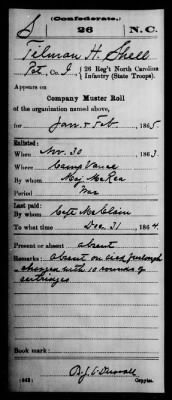 (Confederate.)
S 26 N.C.
Tilman H. Shell
Pvt, Co. I, 26 Reg't North Carolina
Infantry (State Troops).
Appears on
Company Muster Roll
of the organization named above,
for Jan & Feb, 1865
Enlisted:
When Nov. 30, 1863.
Where Camp Vance
By whom Maj McRea
Period War
Last paid:
By whom Capt McClain
To what time Dec 31, 1864.
Present or absent absent
Remarks: absent on sick furlough
charged with 10 rounds of
cartridges
Book mark:
(642)
Copyist.